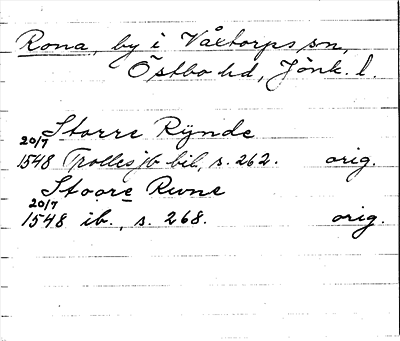 Rona, by i Våxtorps sn,
Östbo hd, Jönk. l.
Storre Rÿnde
20/7
1548 Trolles jb bil, s. 262. orig.
Stoore Rune
20/7
1548 ib., s. 268. orig.